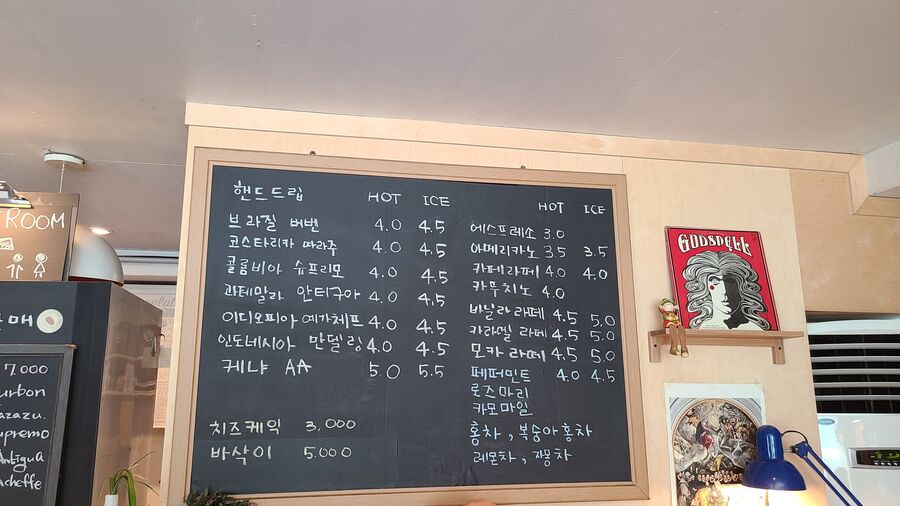 핸드드립 HOT ICE
브라질 버번 4.0 4.5
코스타리카 따라주 4.0 4.5
콜롬비아 슈프리모 4.0 4.5
과테말라 안티구아 4.0 4.5
이디오피아 예가체프 4.0 4.5
인도네시아 만델링 4.0 4.5
케냐 AA 5.0 5.5
치즈케익 3,000
바삭이 5.000
HOT ICE
에스프레소 3.0
아메리카노 3.5 3.5
카페라떼 4.0 4.0
카푸치노 4.0
바닐라라떼 4.5 5.0
카라멜라떼 4.5 5.0
모카라떼 4.5 5.0
페퍼민트 4.0 4.5
로즈마리
카모마일
홍차, 복숭아홍차
레몬차, 자몽차
GODSPELL
ROOM
매
7.000
urbon
azazu.
upremo
Antigua
acheffe